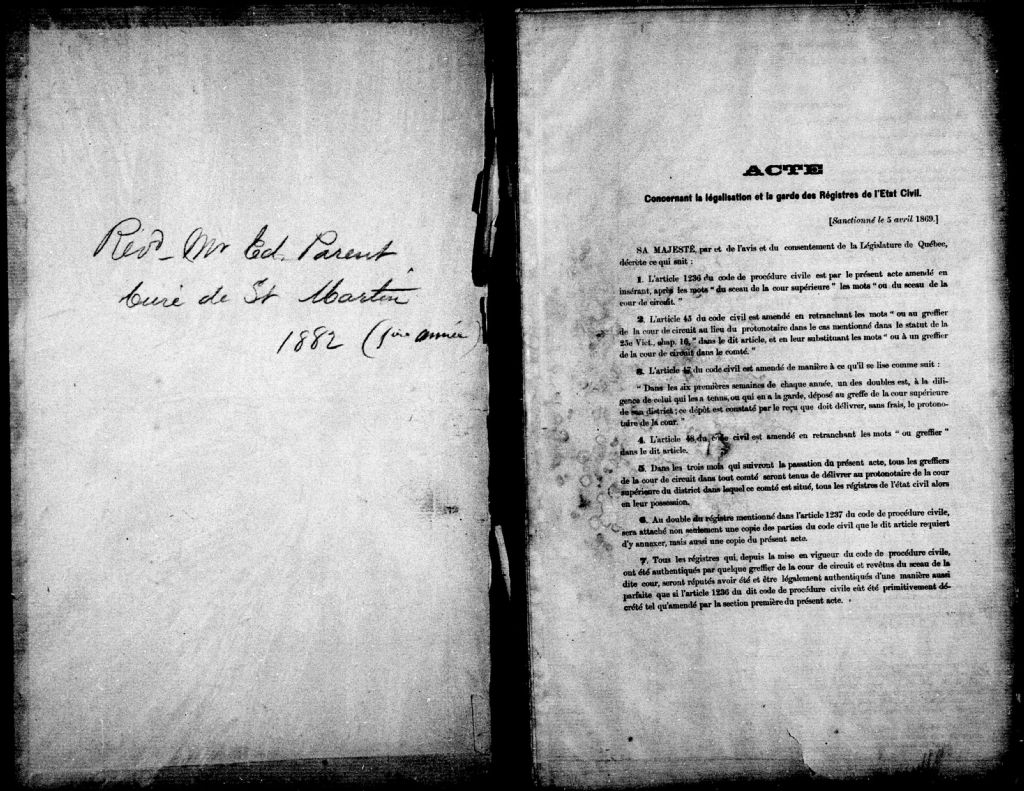 Révd Mr Ed. Parent
Curé de St Martin
1882 (1ère année)
ACTE
Concernant la légalisation et la garde des Régistres de l'Etat Civil.
[Sanctionné le 5 avril 1869.]
SA MAJESTÉ, par et de l'avis et du consentement de la Législature de Québec,
décrète ce qui suit :
1. L'article 1236 du code de procédure civile est par le présent acte amendé en
insérant, après les mots " du sceau de la cour supérieure " les mots " ou du sceau de la
cour de circuit. "
2. L'article 45 du code civil est amendé en retranchant les mots " ou au greffier
de la cour de circuit au lieu du protonotaire dans le cas mentionné dans le statut de la
25e Vict., chap. 16, " dans le dit article, et en leur substituant les mots " ou à un greffier
de la cour de circuit dans le comté. "
3. L'article 47 du code civil est amendé de manière à ce qu'il se lise comme suit :
" Dans les six premières semaines de chaque année, un des doubles est, à la dili-
gence de celui qui les a tenus, ou qui en a la garde, déposé au greffe de la cour supérieure
de son district ; ce dépôt est constaté par le reçu que doit délivrer, sans frais, le protono-
taire de la cour. "
4. L'article 48 du code civil est amendé en retranchant les mots " ou greffier "
dans le dit article.
5. Dans les trois mois qui suivront la passation du présent acte, tous les greffiers
de la cour de circuit dans tout comté seront tenus de délivrer au protonotaire de la cour
supérieure du district dans lequel ce comté est situé, tous les régistres de l'état civil alors
en leur possession.
6. Au double du régistre mentionné dans l'article 1237 du code de procédure civile,
sera attaché non seulement une copie des parties du code civil que le dit article requiert
d'y annexer, mais aussi une copie du présent acte.
7. Tous les régistres qui, depuis la mise en vigueur du code de procédure civile,
ont été authentiqués par quelque greffier de la cour de circuit et revêtus du sceau de la
dite cour, seront réputés avoir été et être légalement authentiqués d'une manière aussi
parfaite que si l'article 1236 du dit code de procédure civile eût été primitivement dé-
crété tel qu'amendé par la section première du présent acte.